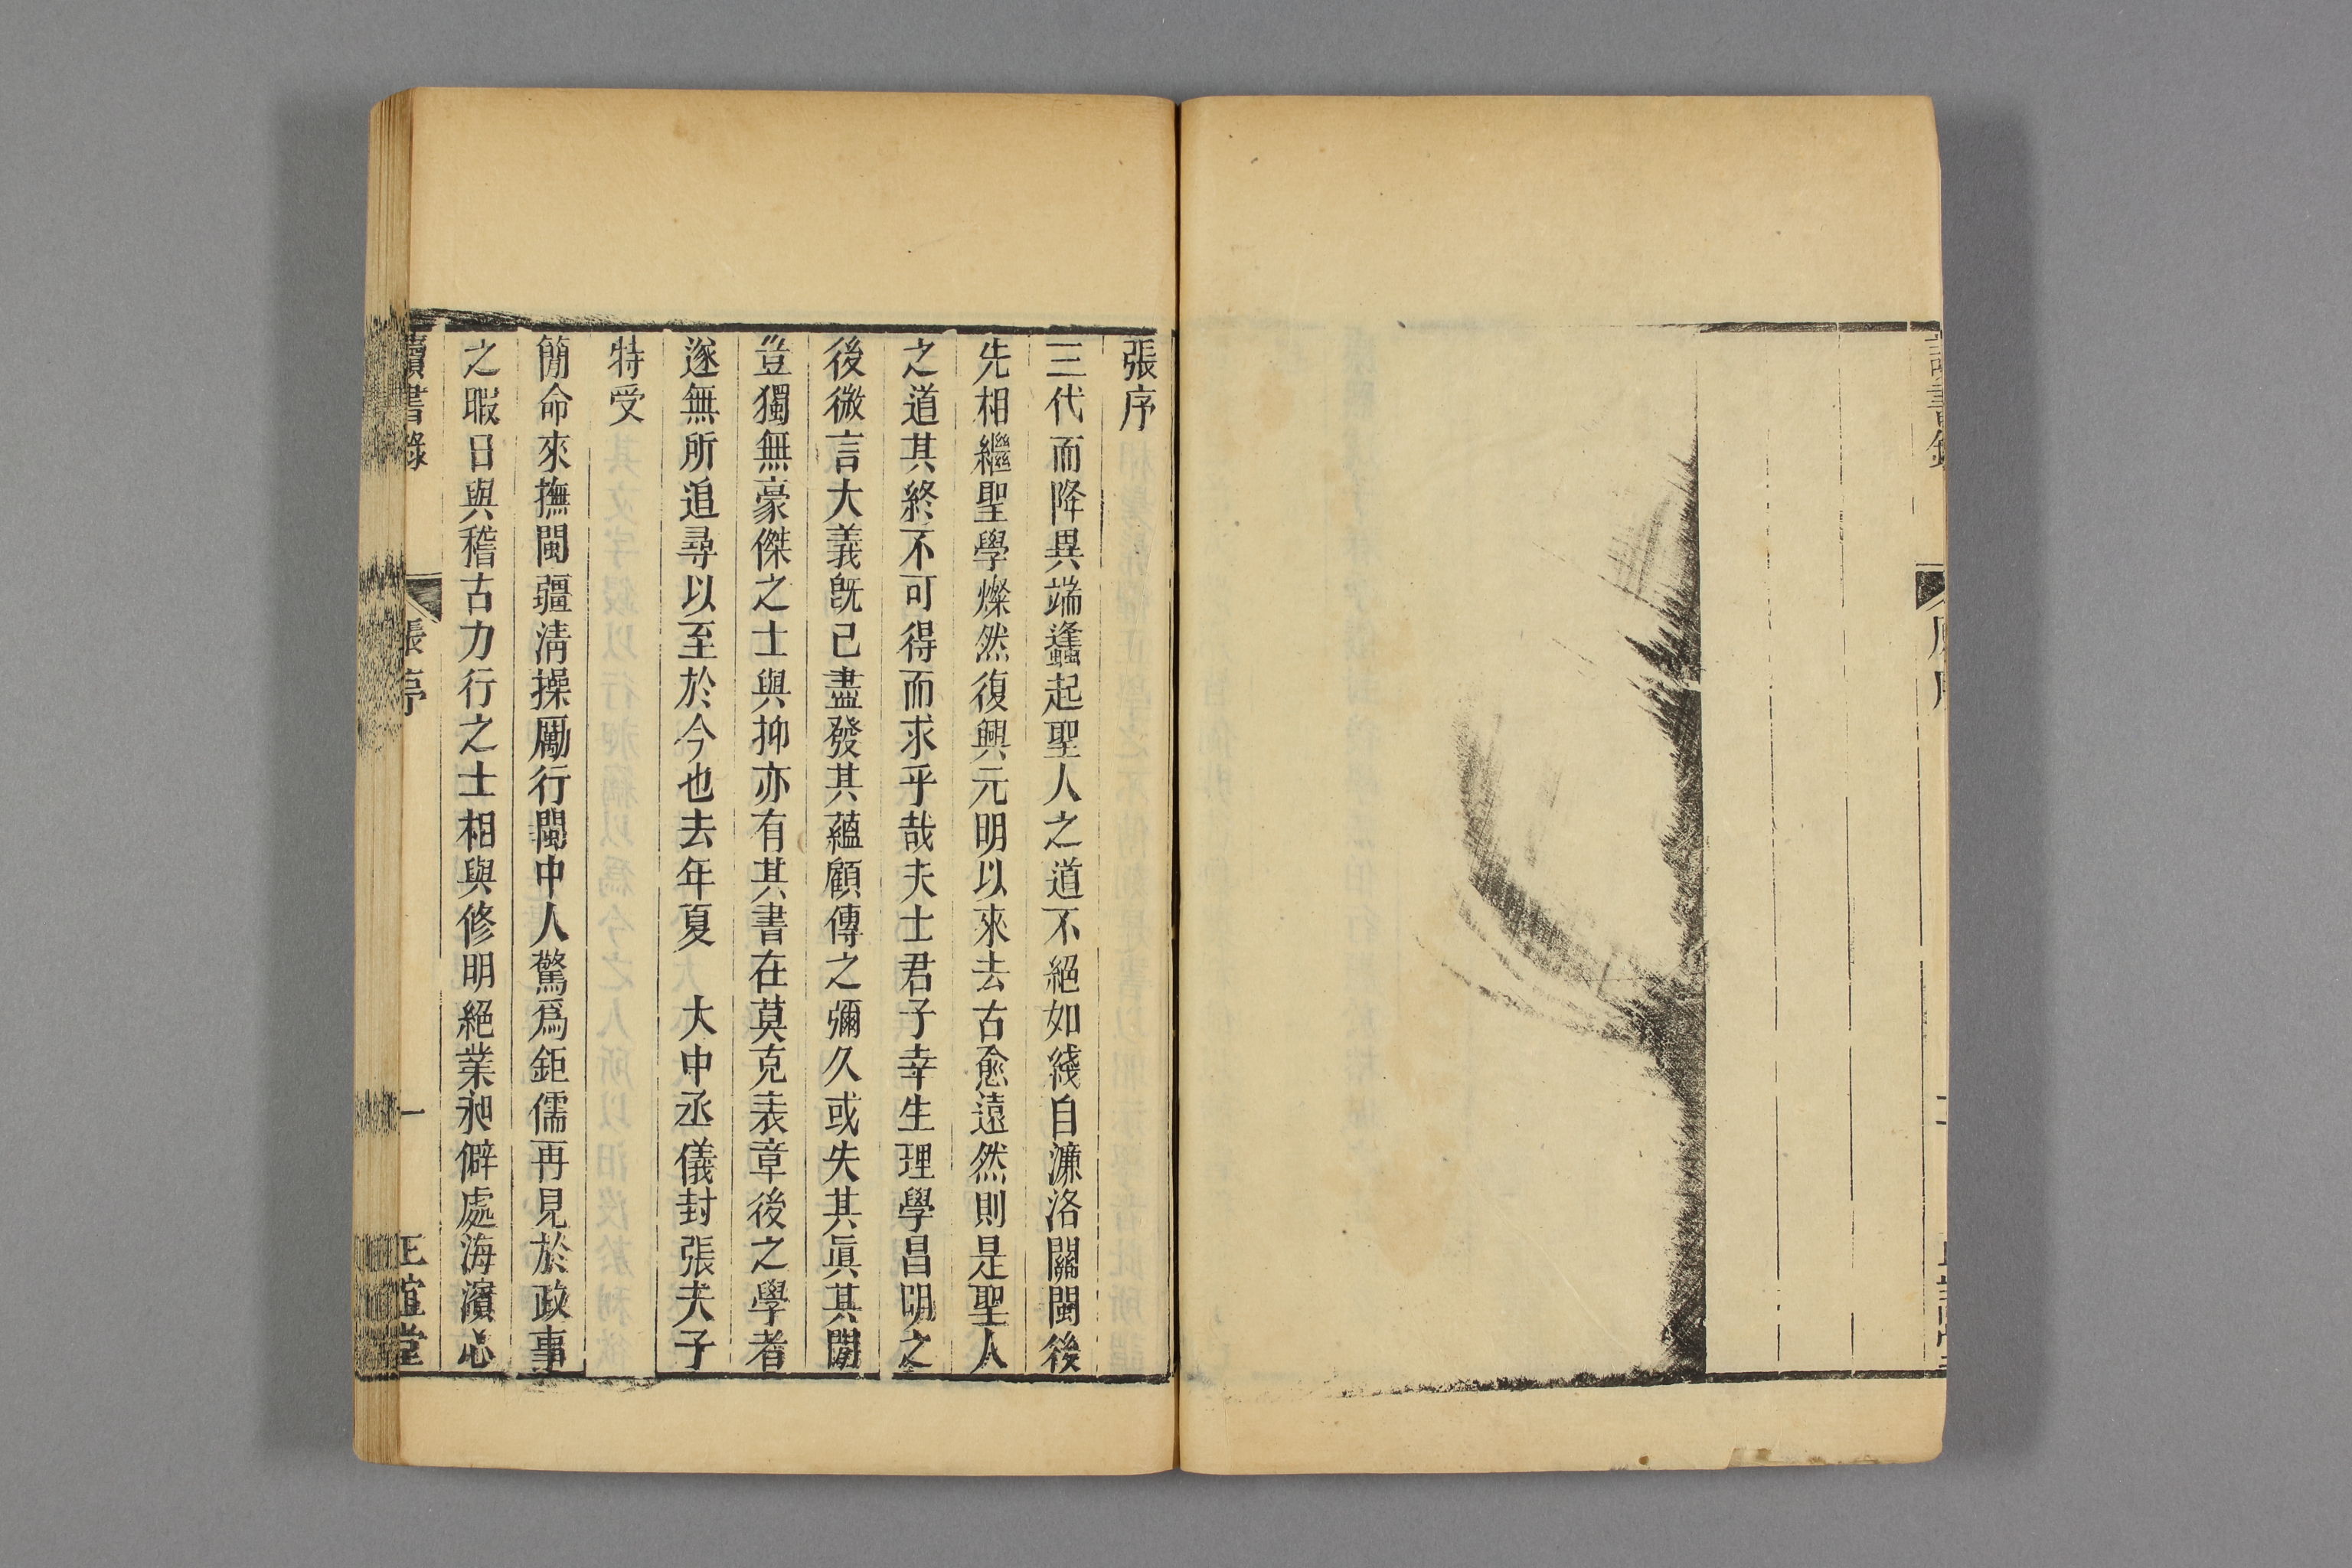 張序
三代而降異端蠭起聖人之道不絕如綫自濂洛關閩後
先相繼聖學燦然復興元明以來去古愈遠然則是聖人
之道其終不可得而求乎哉夫士君子幸生理學昌明之
後微言大義旣已盡發其蘊顧傳之彌久或失其眞其閒
豈獨無豪傑之士與抑亦有其書在莫克表章後之學者
遂無所追尋以至於今也去年夏　大中丞儀封張夫子
特受
簡命來撫閩疆淸操厲行閩中人驚爲鉅儒再見於政事
之暇日與稽古力行之士相與修明絕業昶僻處海濱忘
讀書錄
張序
一
正誼堂